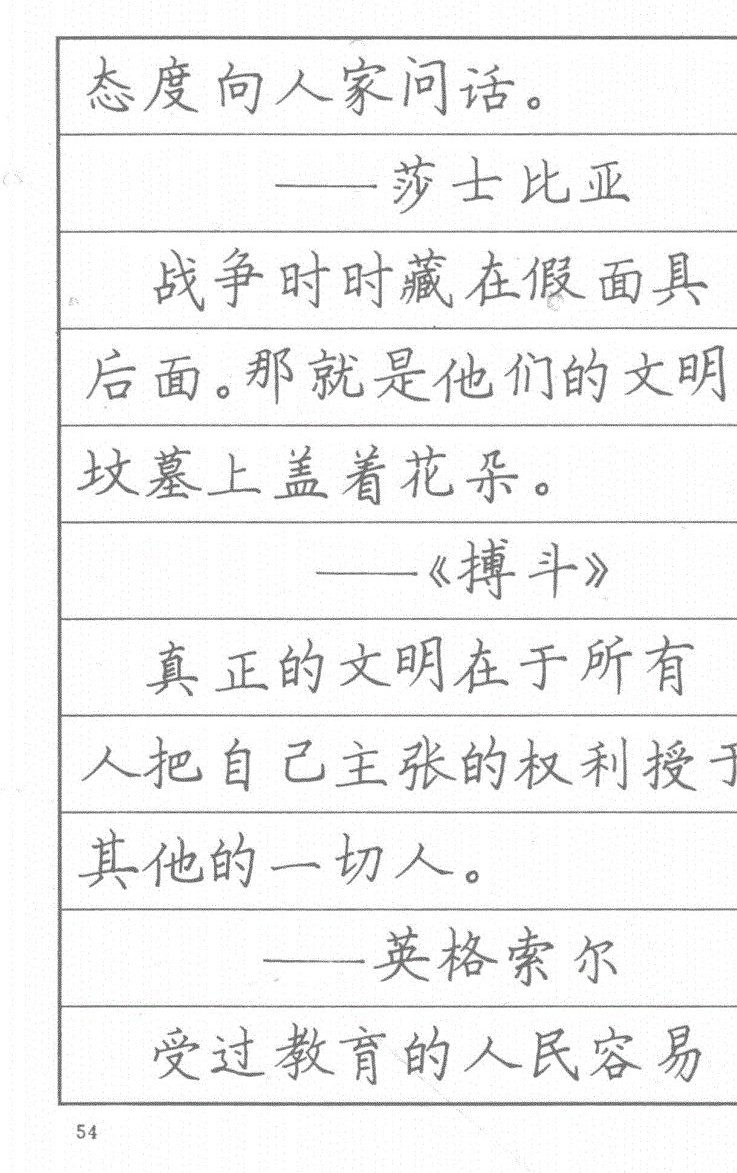 态度向人家问话。
——莎士比亚
战争时时藏在假面具
后面。那就是他们的文明
坟墓上盖着花朵。
——《搏斗》
真正的文明在于所有
人把自己主张的权利授予
其他的一切人。
——英格索尔
受过教育的人民容易
54